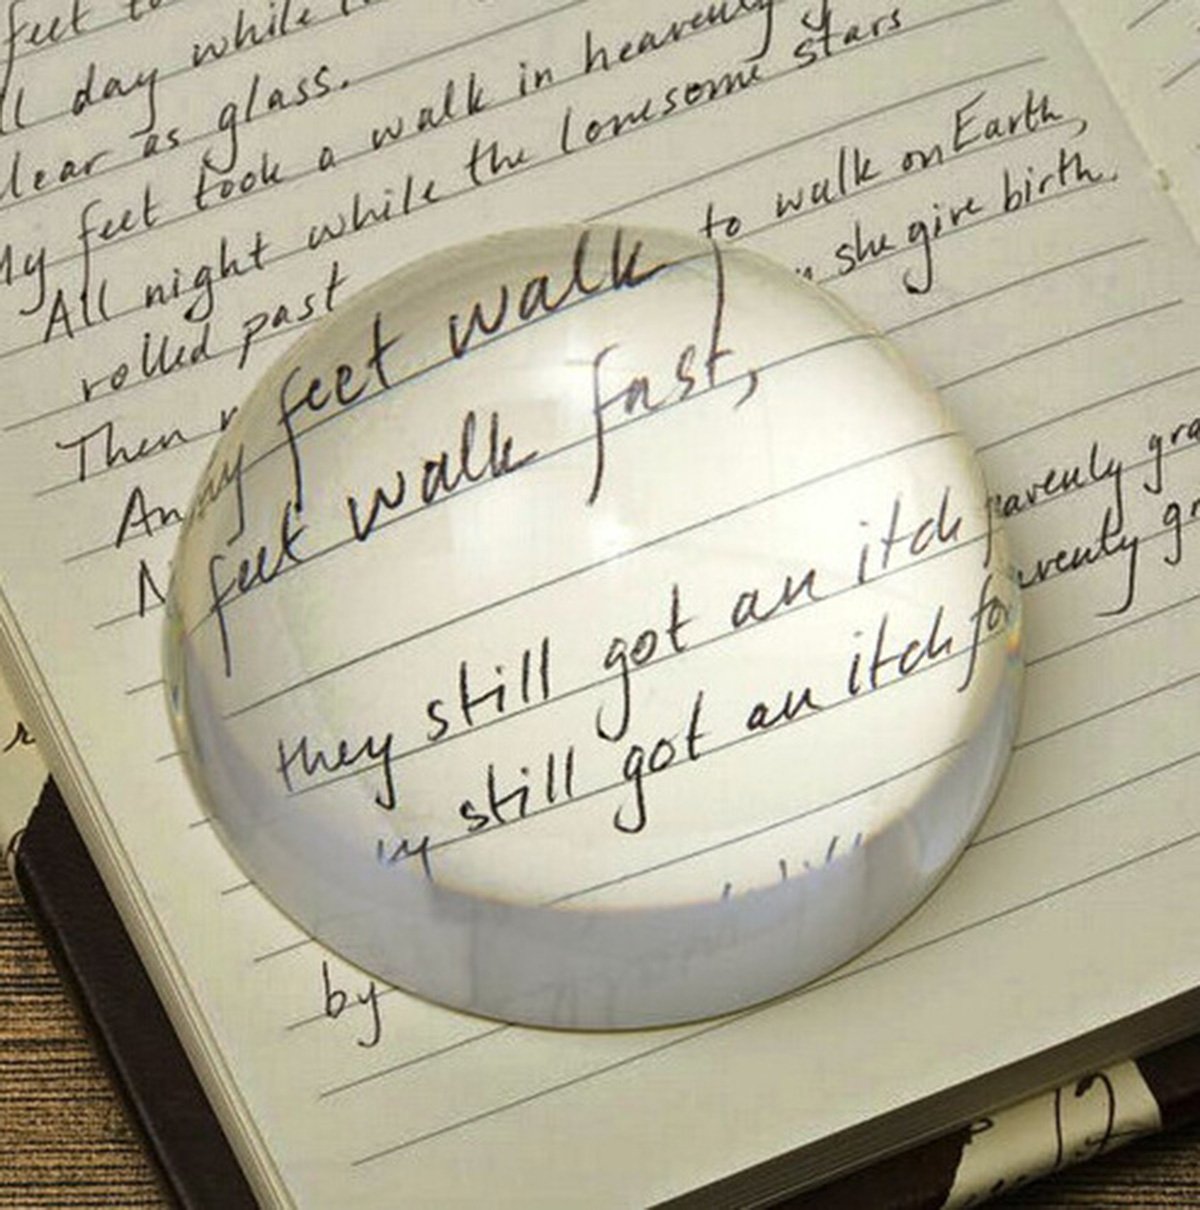 feet to
ll day while
lear as glass.
My feet took a walk in heavenly
All night while the lonesome stars
rolled past
Then to walk on Earth,
An she give birth.
my feet walk
feet walk fast,
they still got an itch eavenly gra
ey still got an itch for avenly gr
by